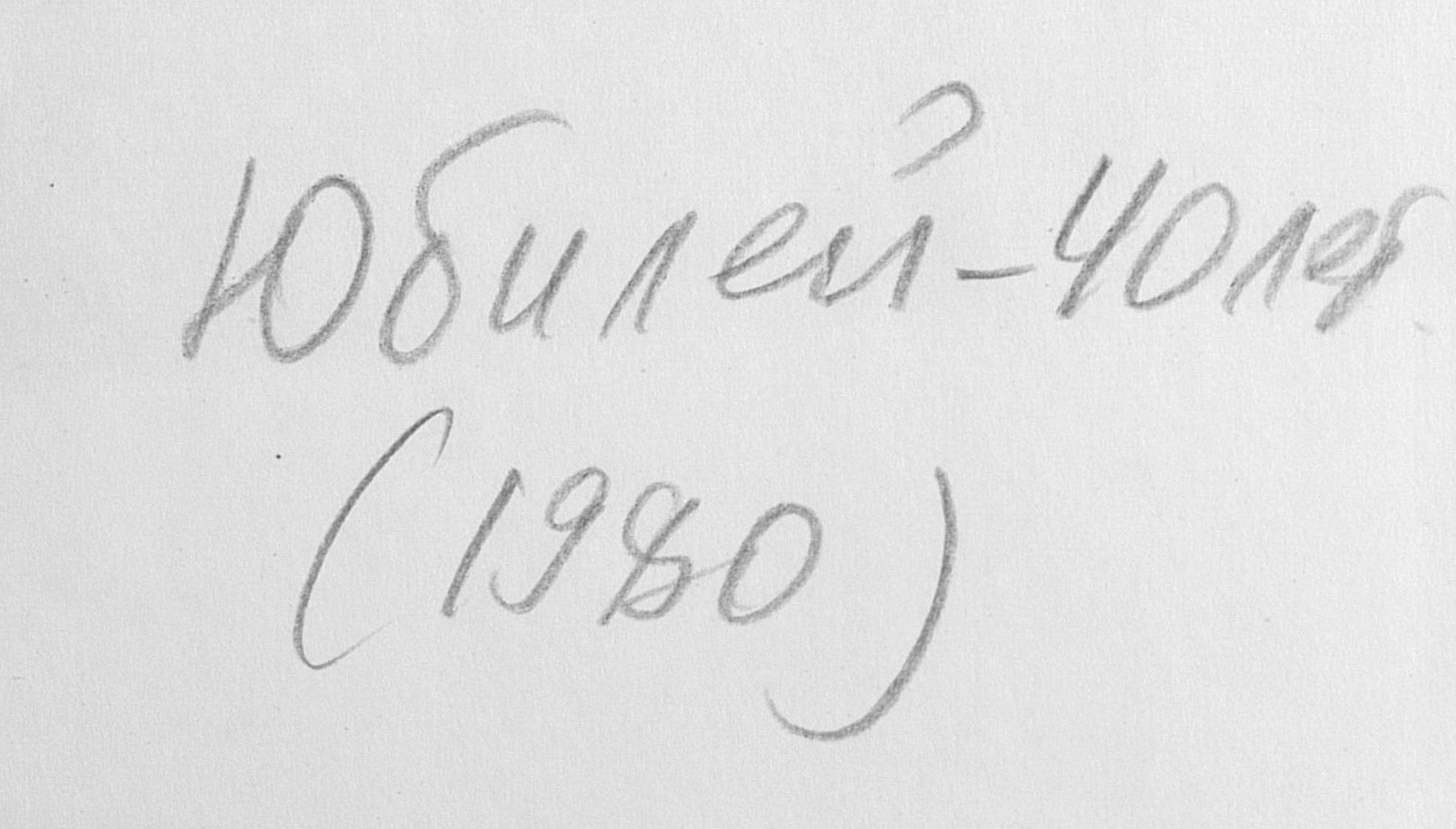 Юбилей-40 лет
(1980)